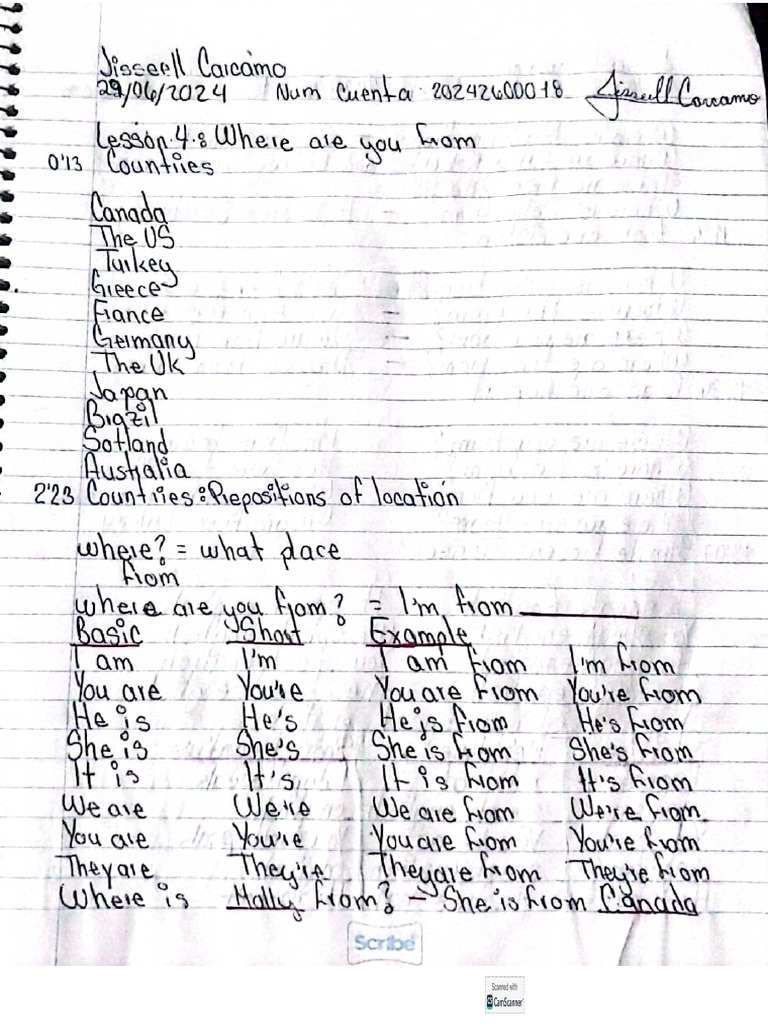 Jisseell Carcamo
29/06/2024 Num Cuenta: 20242600018 Jissell Carcamo
Lesson 4.8 Where are you from
0'13 Countries
Canada
The US
Turkey
Greece
France
Germany
The UK
Japan
Brazil
Sotland
Australia
2'23 Countries: Prepositions of location
where? = what place
from
where are you from? = I'm from ________
Basic Short Example
I am I'm I am from I'm from
You are You're You are from You're from
He is He's He is from He's from
She is She's She is from She's from
It is It's It is from It's from
We are We're We are from We're from
You are You're You are from You're from
They are They're They are from They're from
Where is Molly from? - She is from Canada
Scribe
Scanned with
CamScanner